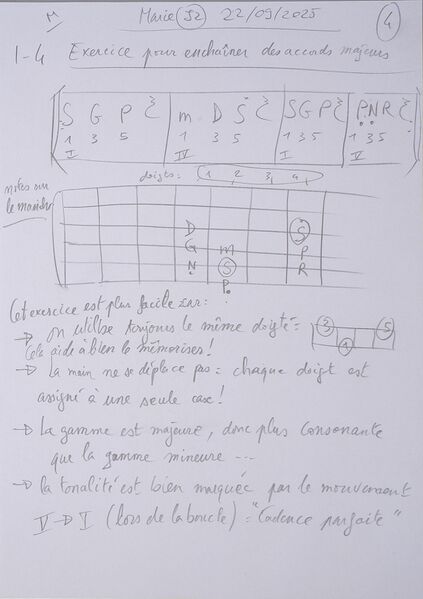 M Marie (S2) 22/09/2025 4
1-4 Exercice pour enchaîner des accords majeurs
S G P | m D S | S G P | P N R
1 3 5 1 3 5 1 3 5 1 3 5
I IV I V
doigts = 1 2 3 4
notes sur
le manche
D S
G m P
N S R
P
Cet exercice est plus facile car :
→ on utilise toujours le même doigté =
3 5
1
Cela aide à bien le mémoriser !
→ la main ne se déplace pas = chaque doigt est
assigné à une seule case !
→ la gamme est majeure, donc plus consonante
que la gamme mineure ...
→ la tonalité est bien marquée par le mouvement
V → I (lors de la boucle) = "Cadence parfaite"